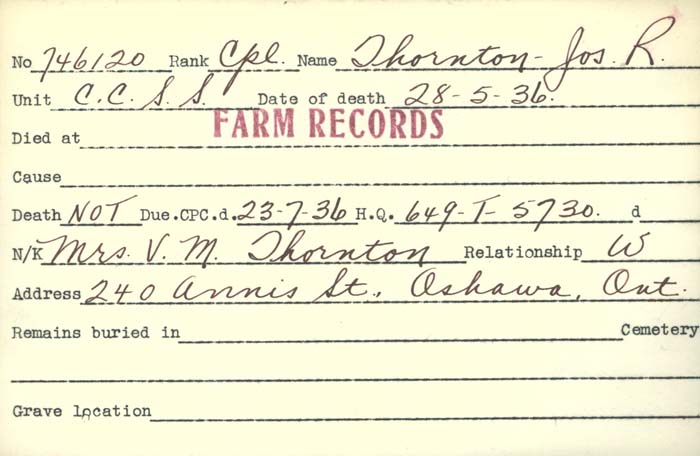 No 746120 Rank Cpl. Name Thornton - Jos. R.
Unit C.C.S.S. Date of death 28-5-36.
FARM RECORDS
Died at
Cause
Death NOT Due.CPC.d. 23-7-36 H.Q. 649-T-5730. d
N/K Mrs. V. M. Thornton Relationship W
Address 240 Annis St., Oshawa, Ont.
Remains buried in Cemetery
Grave location